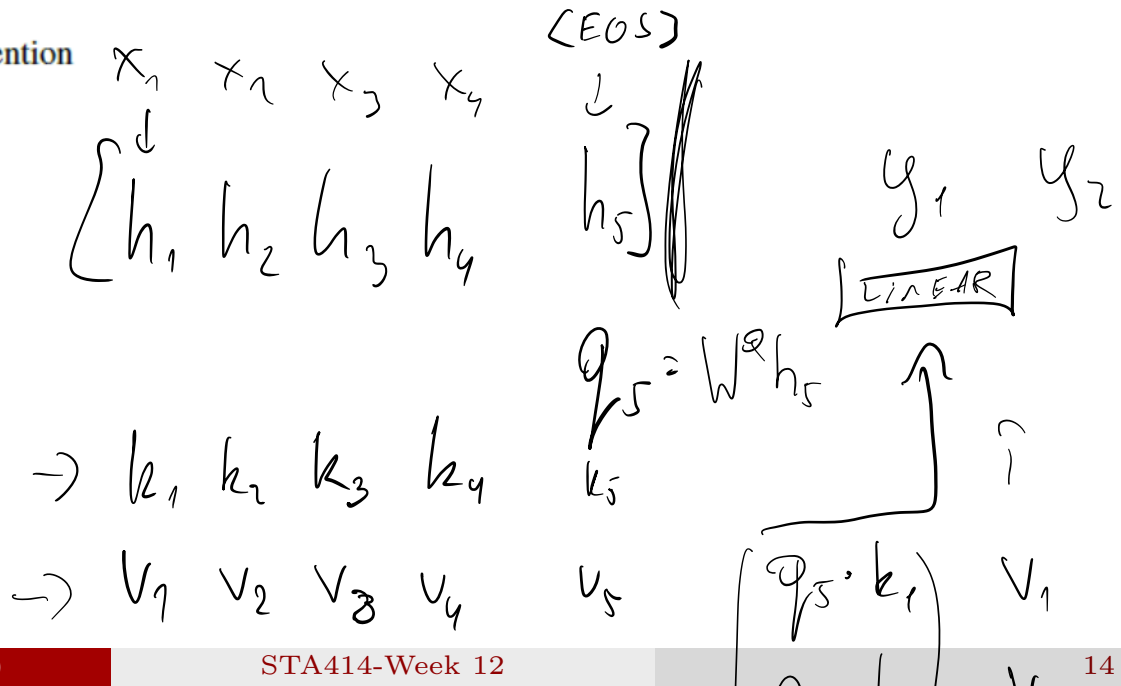 ention
x₁ x₂ x₃ x₄ [EOS]
[h₁ h₂ h₃ h₄ h₅]
y₁ y₂
LINEAR
q₅ = W^Q h₅
→ k₁ k₂ k₃ k₄ k₅
→ v₁ v₂ v₃ v₄ v₅
q₅ · k₁ v₁
STA414-Week 12
14